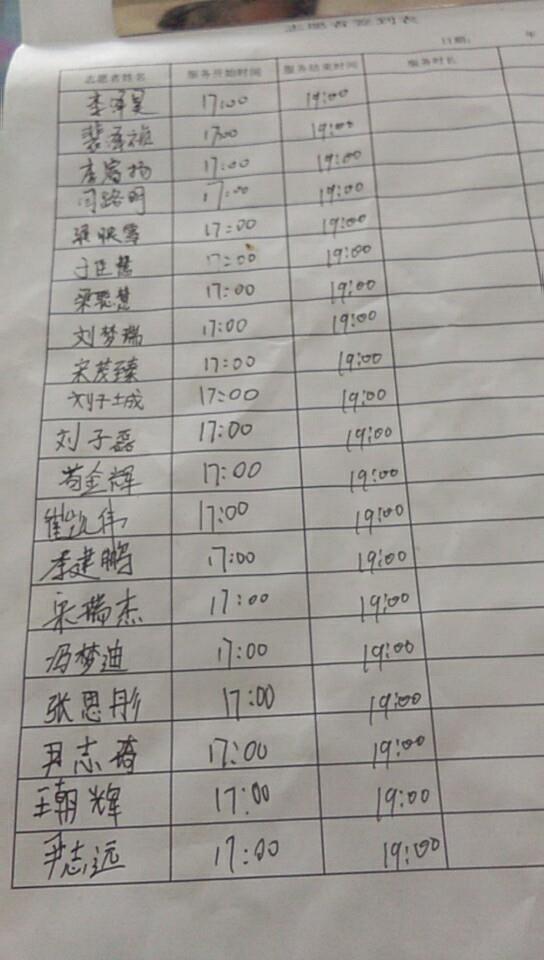 志愿者签到表
日期： 年
志愿者姓名 服务开始时间 服务结束时间 服务时长
李泽昊 17:00 19:00
裴泽旭 17:00 19:00
李富扬 17:00 19:00
闫路明 17:00 19:00
17:00 19:00
于臣慧 17:00 19:00
梁聪慧 17:00 19:00
刘梦瑞 17:00 19:00
宋茂臻 17:00 19:00
刘子城 17:00 19:00
刘子磊 17:00 19:00
苟金辉 17:00 19:00
崔凯伟 17:00 19:00
李建鹏 17:00 19:00
宋瑞杰 17:00 19:00
冯梦迪 17:00 19:00
张思彤 17:00 19:00
尹志琦 17:00 19:00
王朝辉 17:00 19:00
尹志远 17:00 19:00